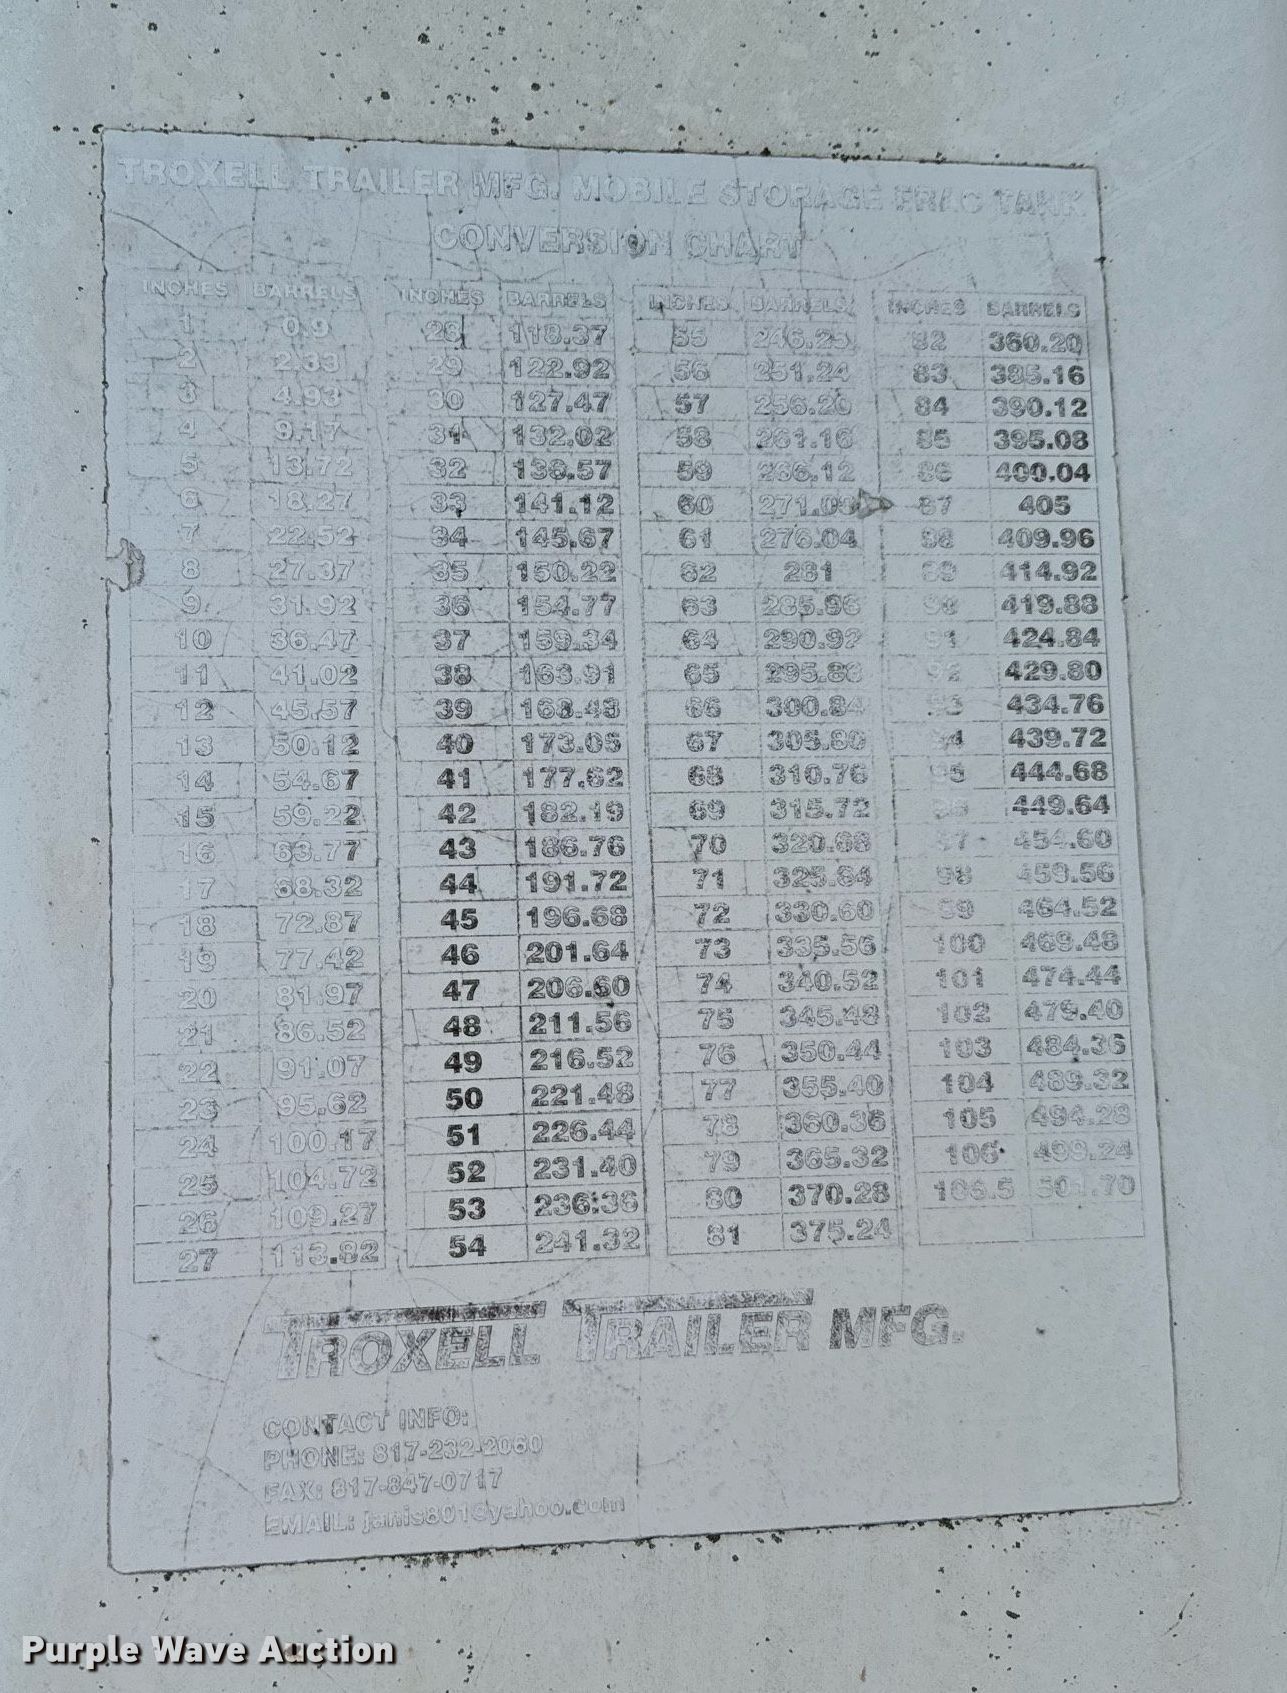 TROXELL TRAILER MFG. MOBILE STORAGE FRAC TANK
CONVERSION CHART
INCHES BARRELS INCHES BARRELS INCHES BARRELS INCHES BARRELS
1 0.9 28 118.37 55 246.28 82 380.20
2 2.33 29 122.92 56 251.24 83 385.16
3 4.93 30 127.47 57 256.20 84 390.12
4 9.17 31 132.02 58 261.16 85 395.08
5 13.72 32 136.57 59 266.12 86 400.04
6 18.27 33 141.12 60 271.08 87 405
7 22.52 34 145.67 61 276.04 88 409.96
8 27.37 35 150.22 62 281 89 414.92
9 31.92 36 154.77 63 285.96 90 419.88
10 36.47 37 159.34 64 290.92 91 424.84
11 41.02 38 163.91 65 295.88 92 429.80
12 45.57 39 168.48 66 300.84 93 434.76
13 50.12 40 173.05 67 305.80 94 439.72
14 54.67 41 177.62 68 310.76 95 444.68
15 59.22 42 182.19 69 315.72 96 449.64
16 63.77 43 186.76 70 320.68 97 454.60
17 68.32 44 191.72 71 325.64 98 459.56
18 72.87 45 196.68 72 330.60 99 464.52
19 77.42 46 201.64 73 335.56 100 469.48
20 81.97 47 206.60 74 340.52 101 474.44
21 86.52 48 211.56 75 345.48 102 479.40
22 91.07 49 216.52 76 350.44 103 484.36
23 95.62 50 221.48 77 355.40 104 489.32
24 100.17 51 226.44 78 360.36 105 494.28
25 104.72 52 231.40 79 365.32 106 499.24
26 109.27 53 236.36 80 370.28 106.5 501.70
27 113.82 54 241.32 81 375.24
TROXELL TRAILER MFG.
CONTACT INFO:
PHONE: 817-232-2060
FAX: 817-847-0717
EMAIL: janis801@yahoo.com
Purple Wave Auction